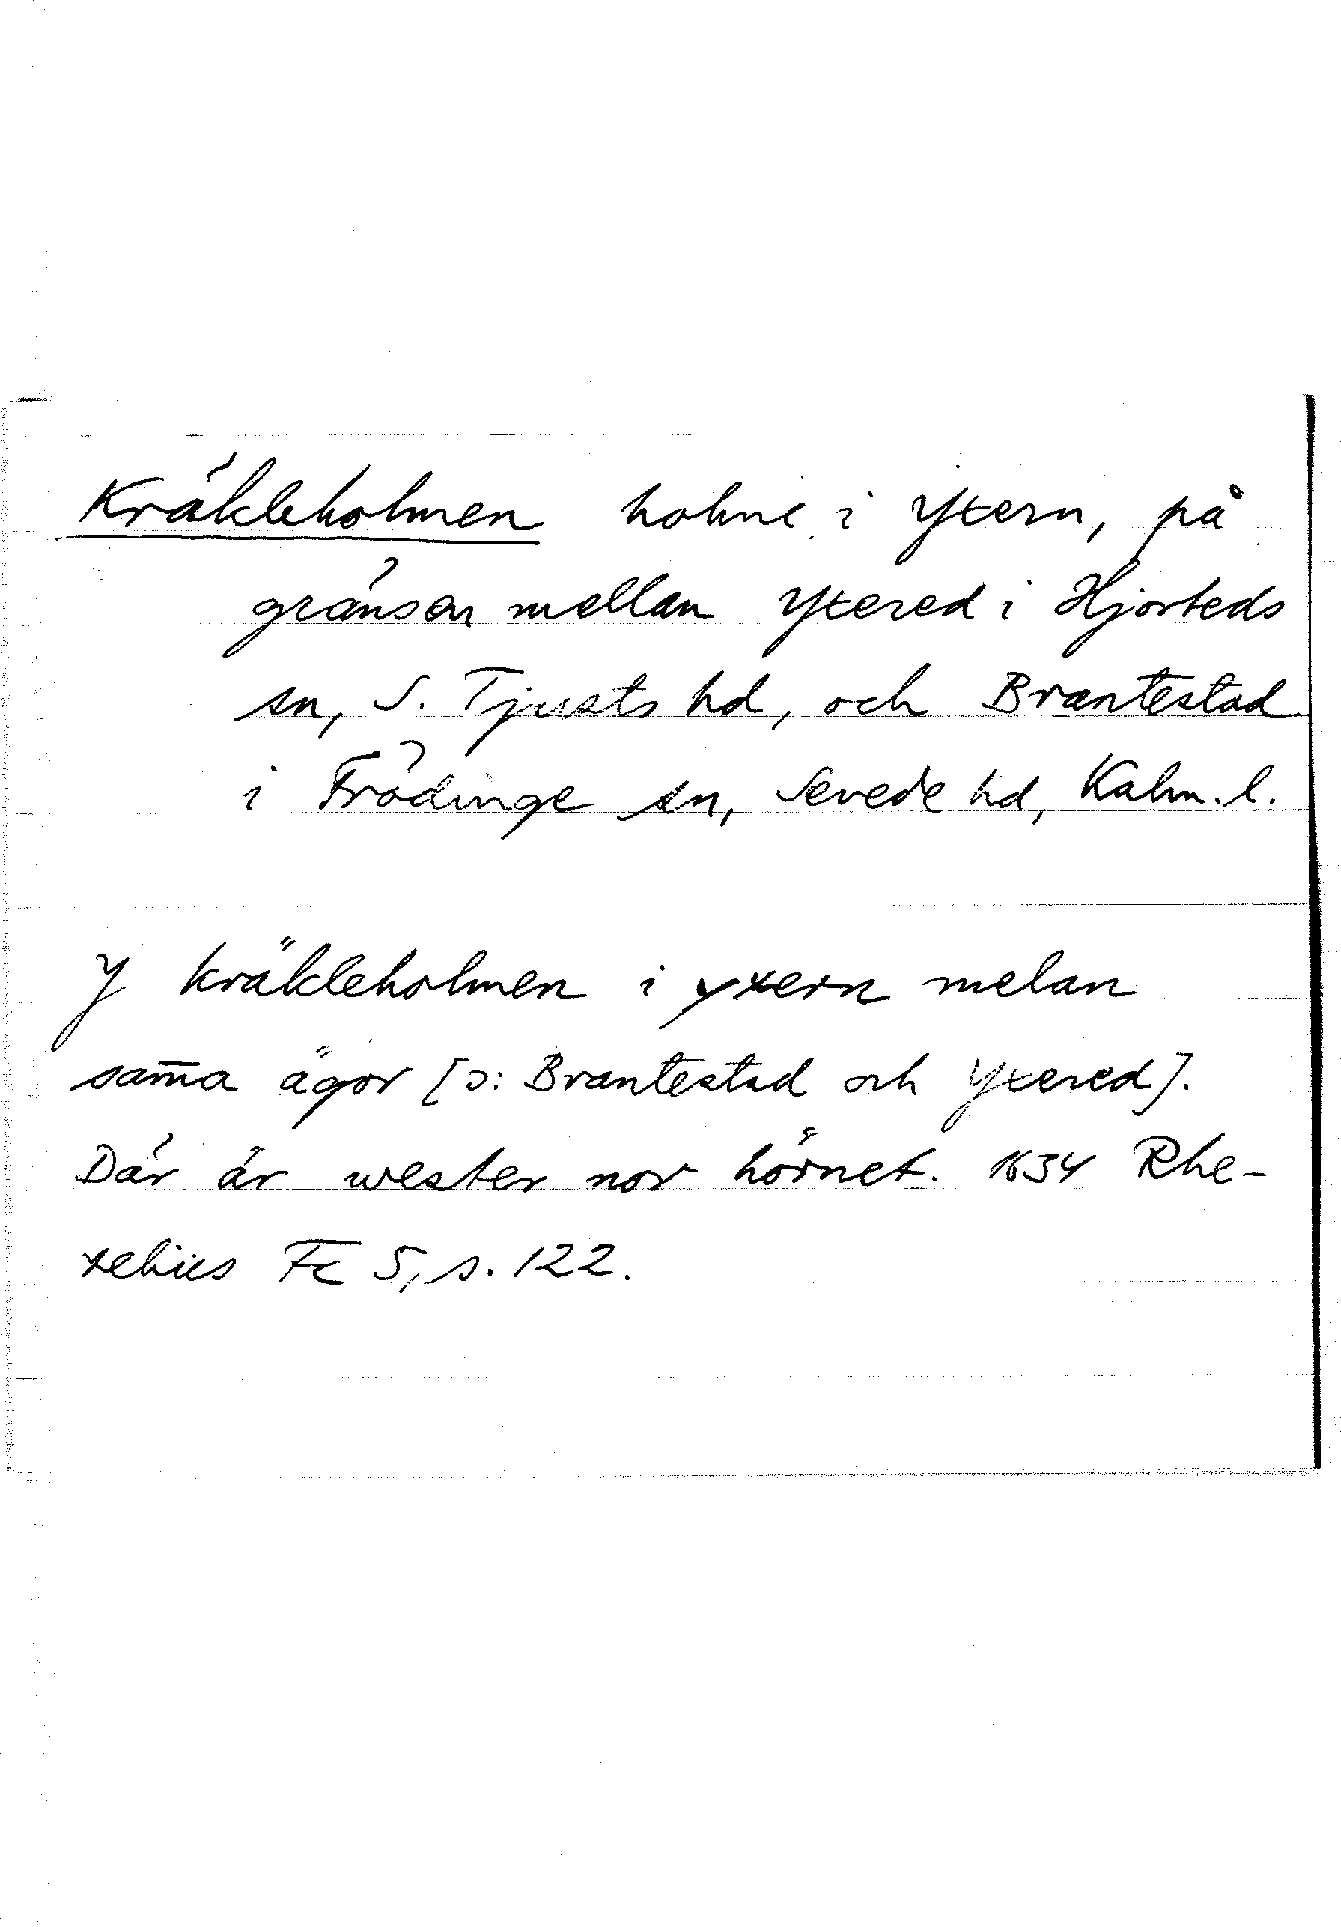 Kräkleholmen holme i Yxern, på
gränsen mellan Yxered i Hjorteds
sn, S. Tjusts hd, och Brantestad
i Frödinge sn, Sevede hd, Kalm. l.
J kräkleholmen i yxern melan
sam̄a ägor [ɔ: Brantestad och Yxered].
Där är wester nor hörnet. 1634 Rhe-
xelius Fc 5, s. 122.